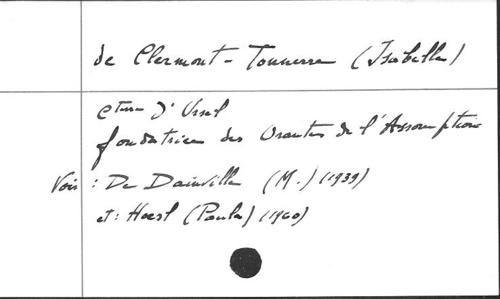 de Clermont-Tonnerre (Isabelle)
Ctesse d'Ursel
fondatrice des Orantes de l'Assomption
Voir : De Dainville (M.) (1939)
et : Hoest (Paula) (1960)